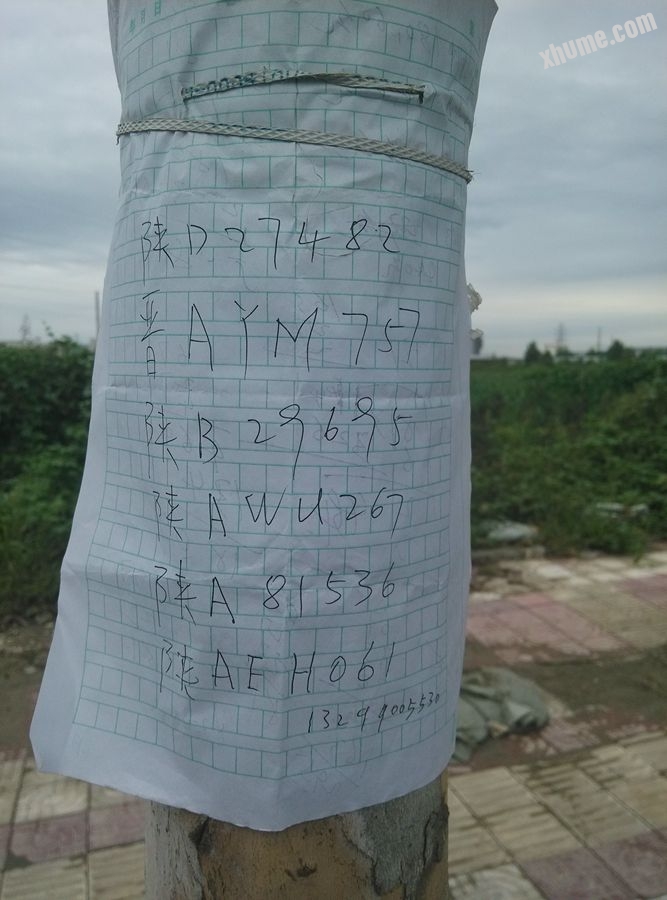 xhume.com
年 月 日
陕D27482
晋AYM757
陕B29695
陕AWU267
陕A81536
陕AEH061
13299005530